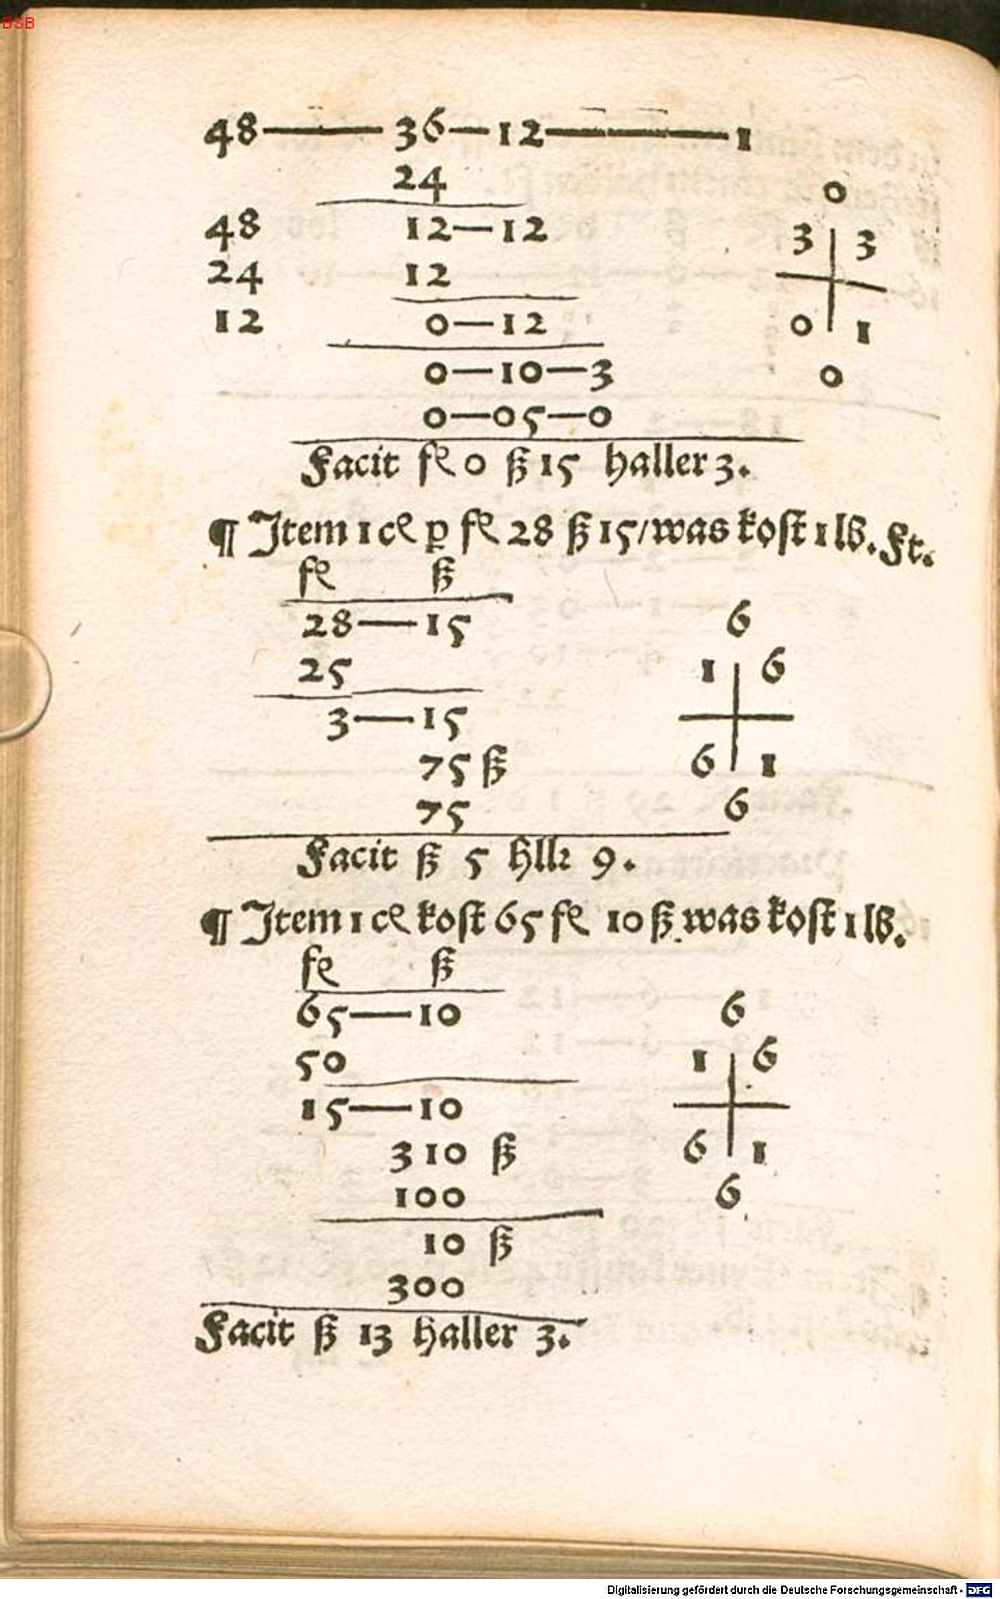 BSB
48 — 36 — 12 — 1
24
48 12 — 12
24 12
12 0 — 12
0 — 10 — 3
0 — 05 — 0
0
3 3
0 1
0
Facit fl 0 ß 15 haller 3.
¶ Jtem 1 ce p fl 28 ß 15/was kost 1 lb. Ft.
fl ß
28 — 15
25
3 — 15
75 ß
75
6
1 6
6 1
6
Facit ß 5 hllr 9.
¶ Jtem 1 ce kost 65 fl 10 ß was kost 1 lb.
fl ß
65 — 10
50
15 — 10
310 ß
100
10 ß
300
6
1 6
6 1
6
Facit ß 13 haller 3.
Digitalisierung gefördert durch die Deutsche Forschungsgemeinschaft - DFG